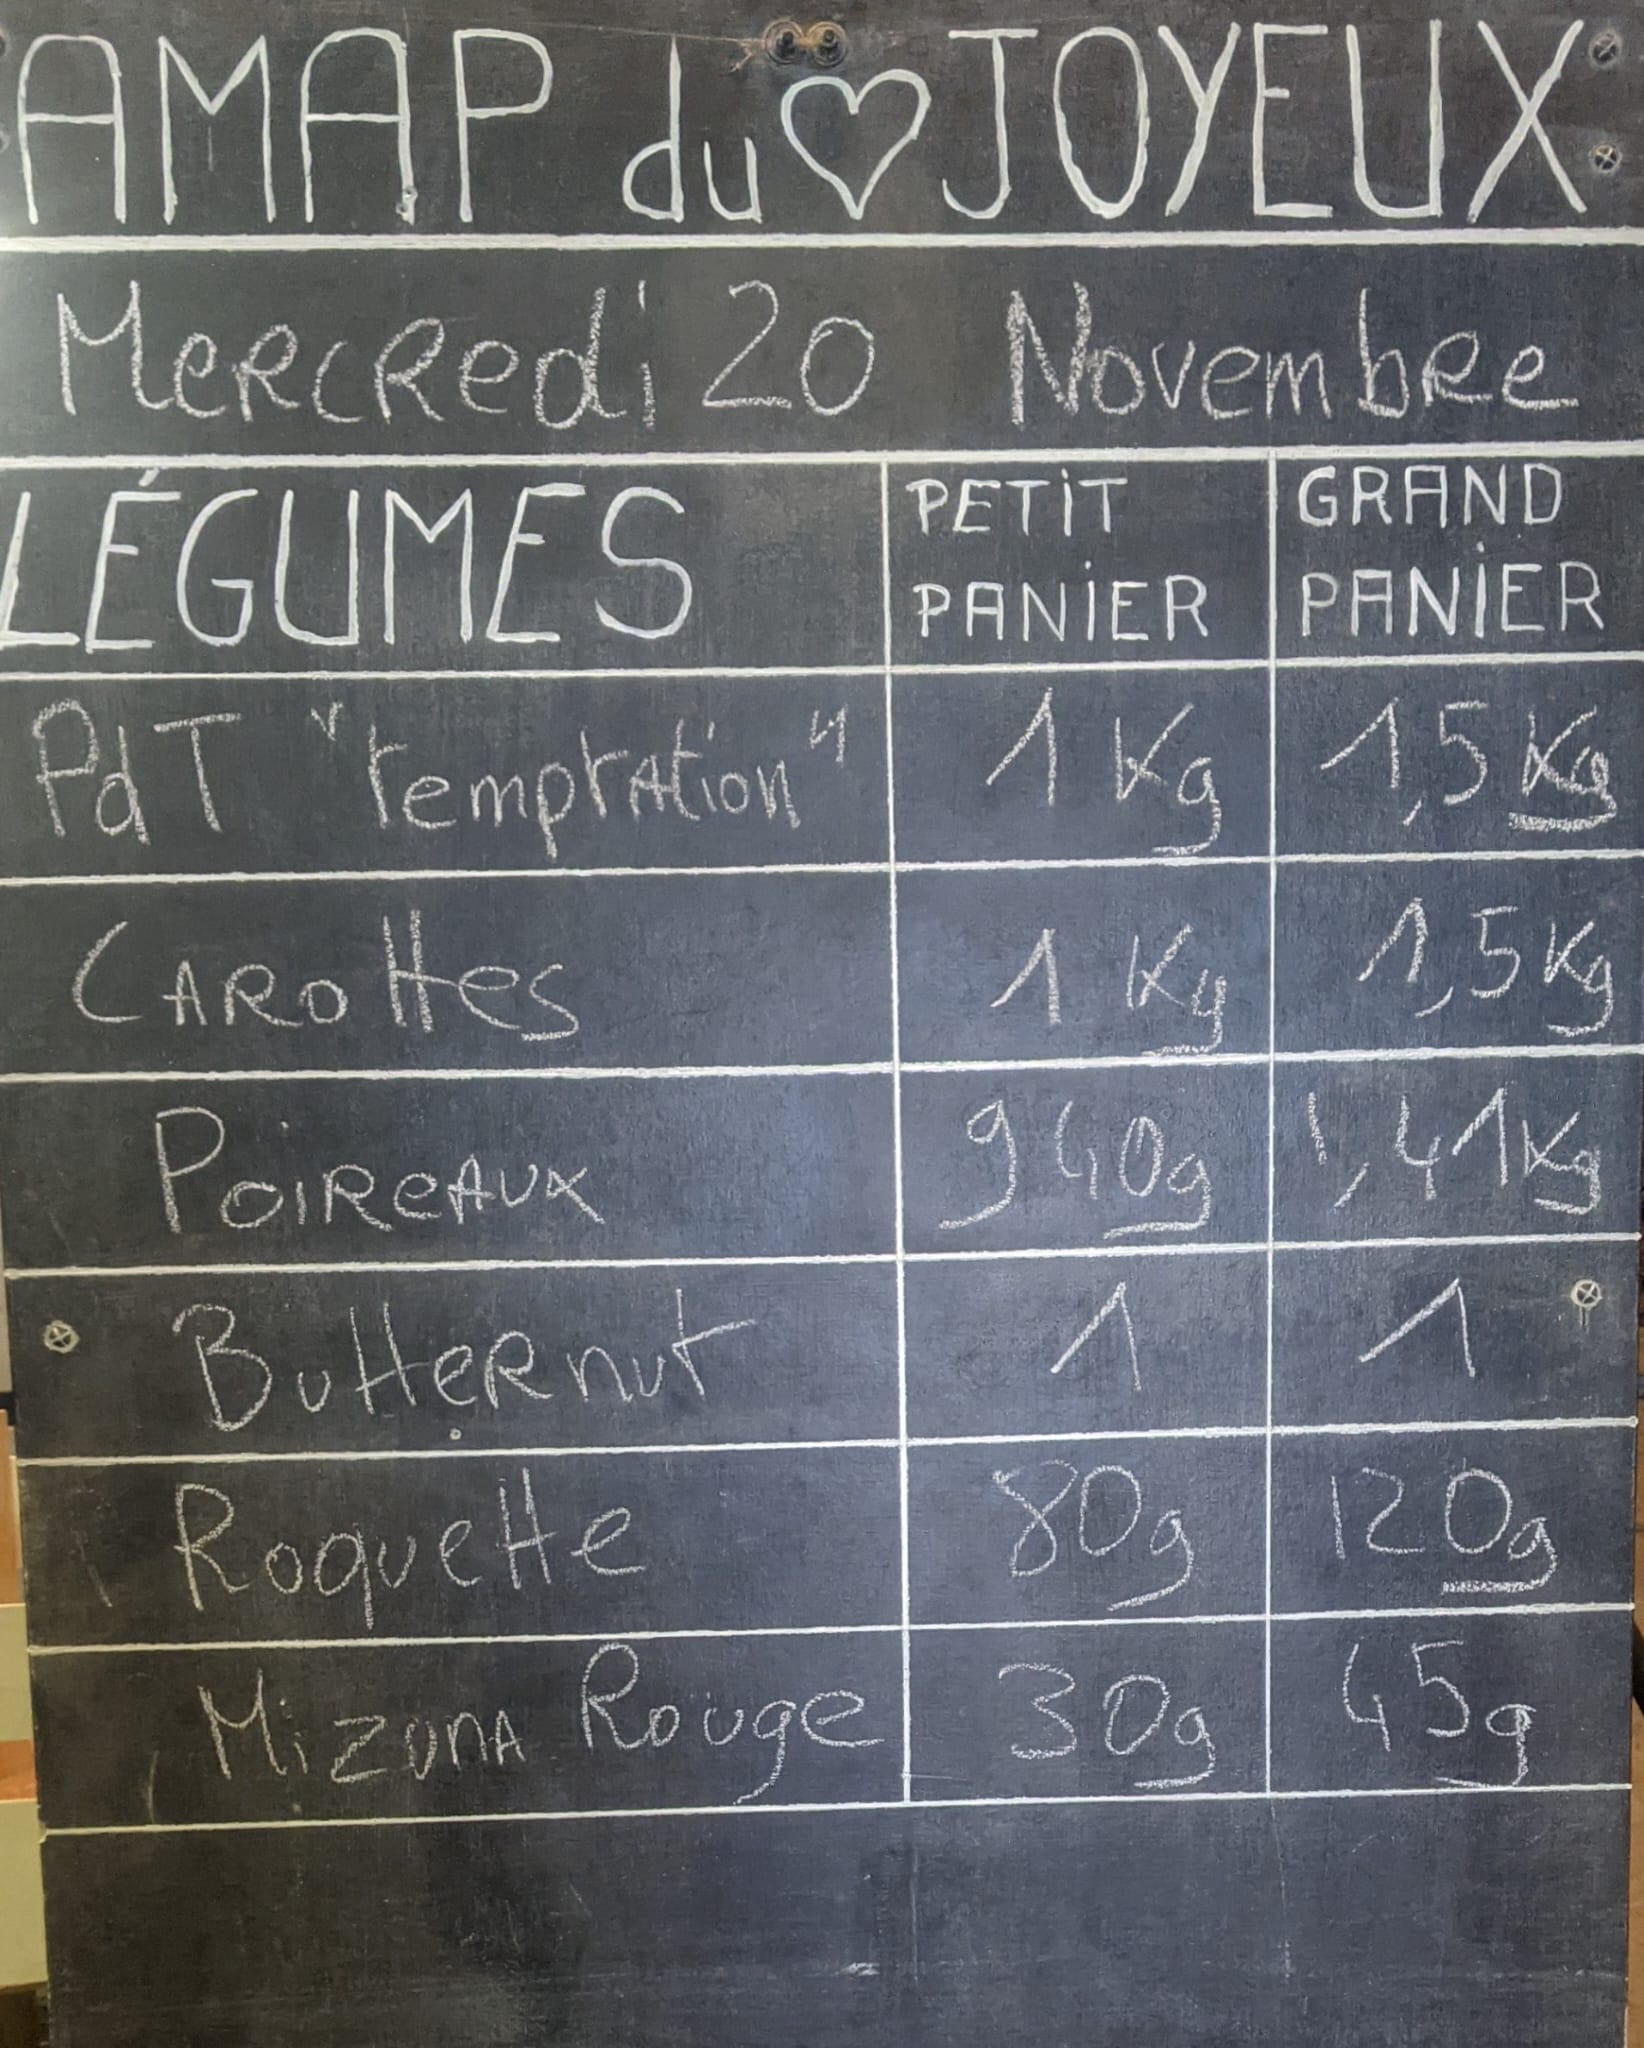 AMAP du ♡ JOYEUX
Mercredi 20 Novembre
LÉGUMES PETIT PANIER GRAND PANIER
PdT "temptation" 1 Kg 1,5 Kg
Carottes 1 Kg 1,5 Kg
Poireaux 940g 1,41 Kg
Butternut 1 1
Roquette 80g 120g
Mizuna Rouge 30g 45g